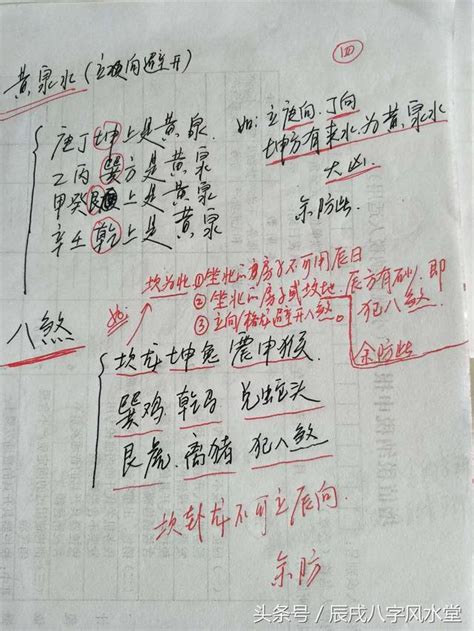 四
黄泉水(立项向避开)
庚丁坤上是黄泉
乙丙巽方是黄泉
甲癸艮上是黄泉
辛壬乾上是黄泉
如:立庚向、丁向
坤方有来水为黄泉水
大凶
余防此.
八煞
如:
坎为北 ①坐北的房子不可用辰日
②坐北的房子或坟地.辰方有砂,即犯八煞.
③立向/格龙避开八煞。
余防此
坎龙坤兔震申猴.
巽鸡乾马兑蛇头
艮虎.离猪犯八煞
坎卦龙不可立辰向.
余防
头条号/辰戌八字风水堂